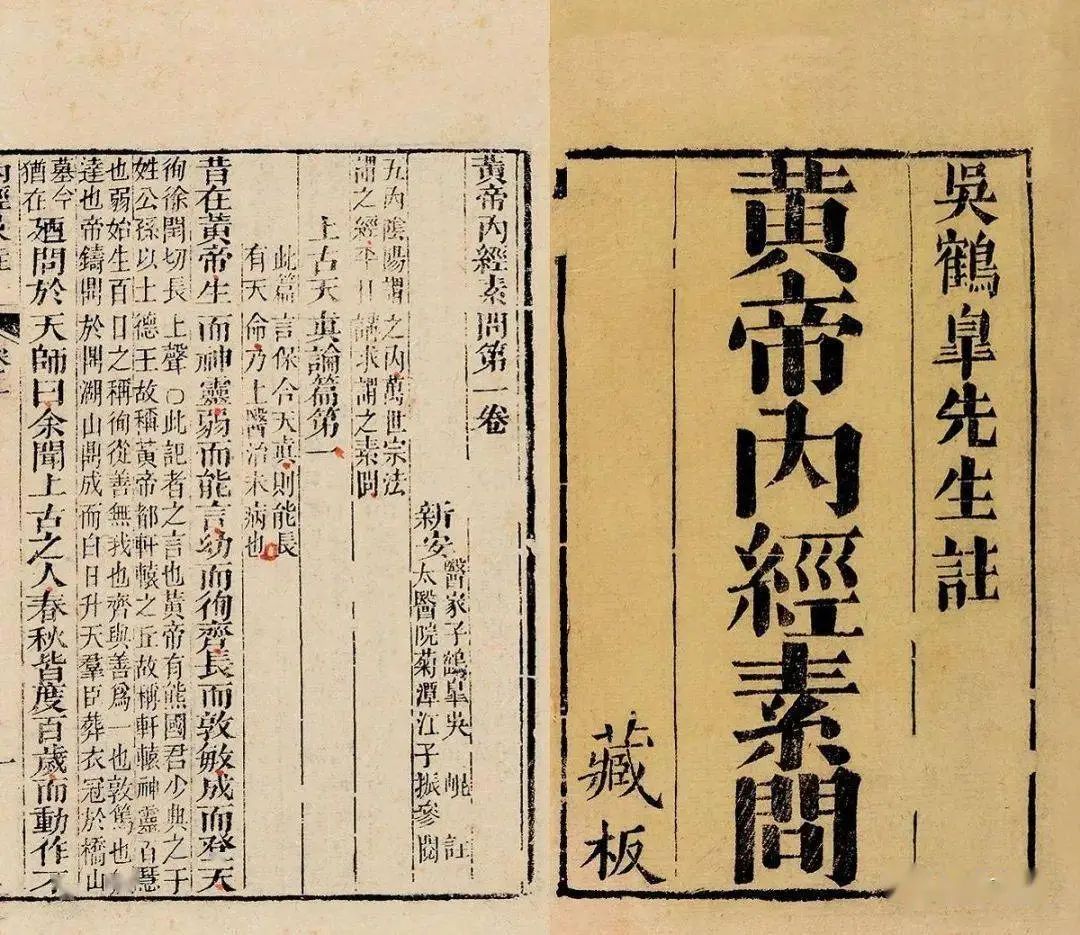 吳鶴皐先生註
黃帝內經素問
藏板
黃帝內經素問第一卷
新安
醫家子鶴皐吳崐註
太醫院菊潭江子振參閱
五內陰陽謂之內萬世宗法
謂之經平日講求謂之素問
上古天真論篇第一
此篇言保合天真則能長
有天命乃上醫治未病也
昔在黃帝生而神靈弱而能言幼而徇齊長而敦敏成而登天
徇徐閏切長上聲○此記者之言也黃帝有熊國君少典之子
姓公孫以土德王故稱黃帝都軒轅之丘故稱軒轅神靈百慧
也弱始生百日之稱徇從善無我也齊與善爲一也敦篤也
達也帝鑄鼎於鼎湖山鼎成而白日升天羣臣葬衣冠於橋山
墓今
猶在
廼問於天師曰余聞上古之人春秋皆度百歲而動作不